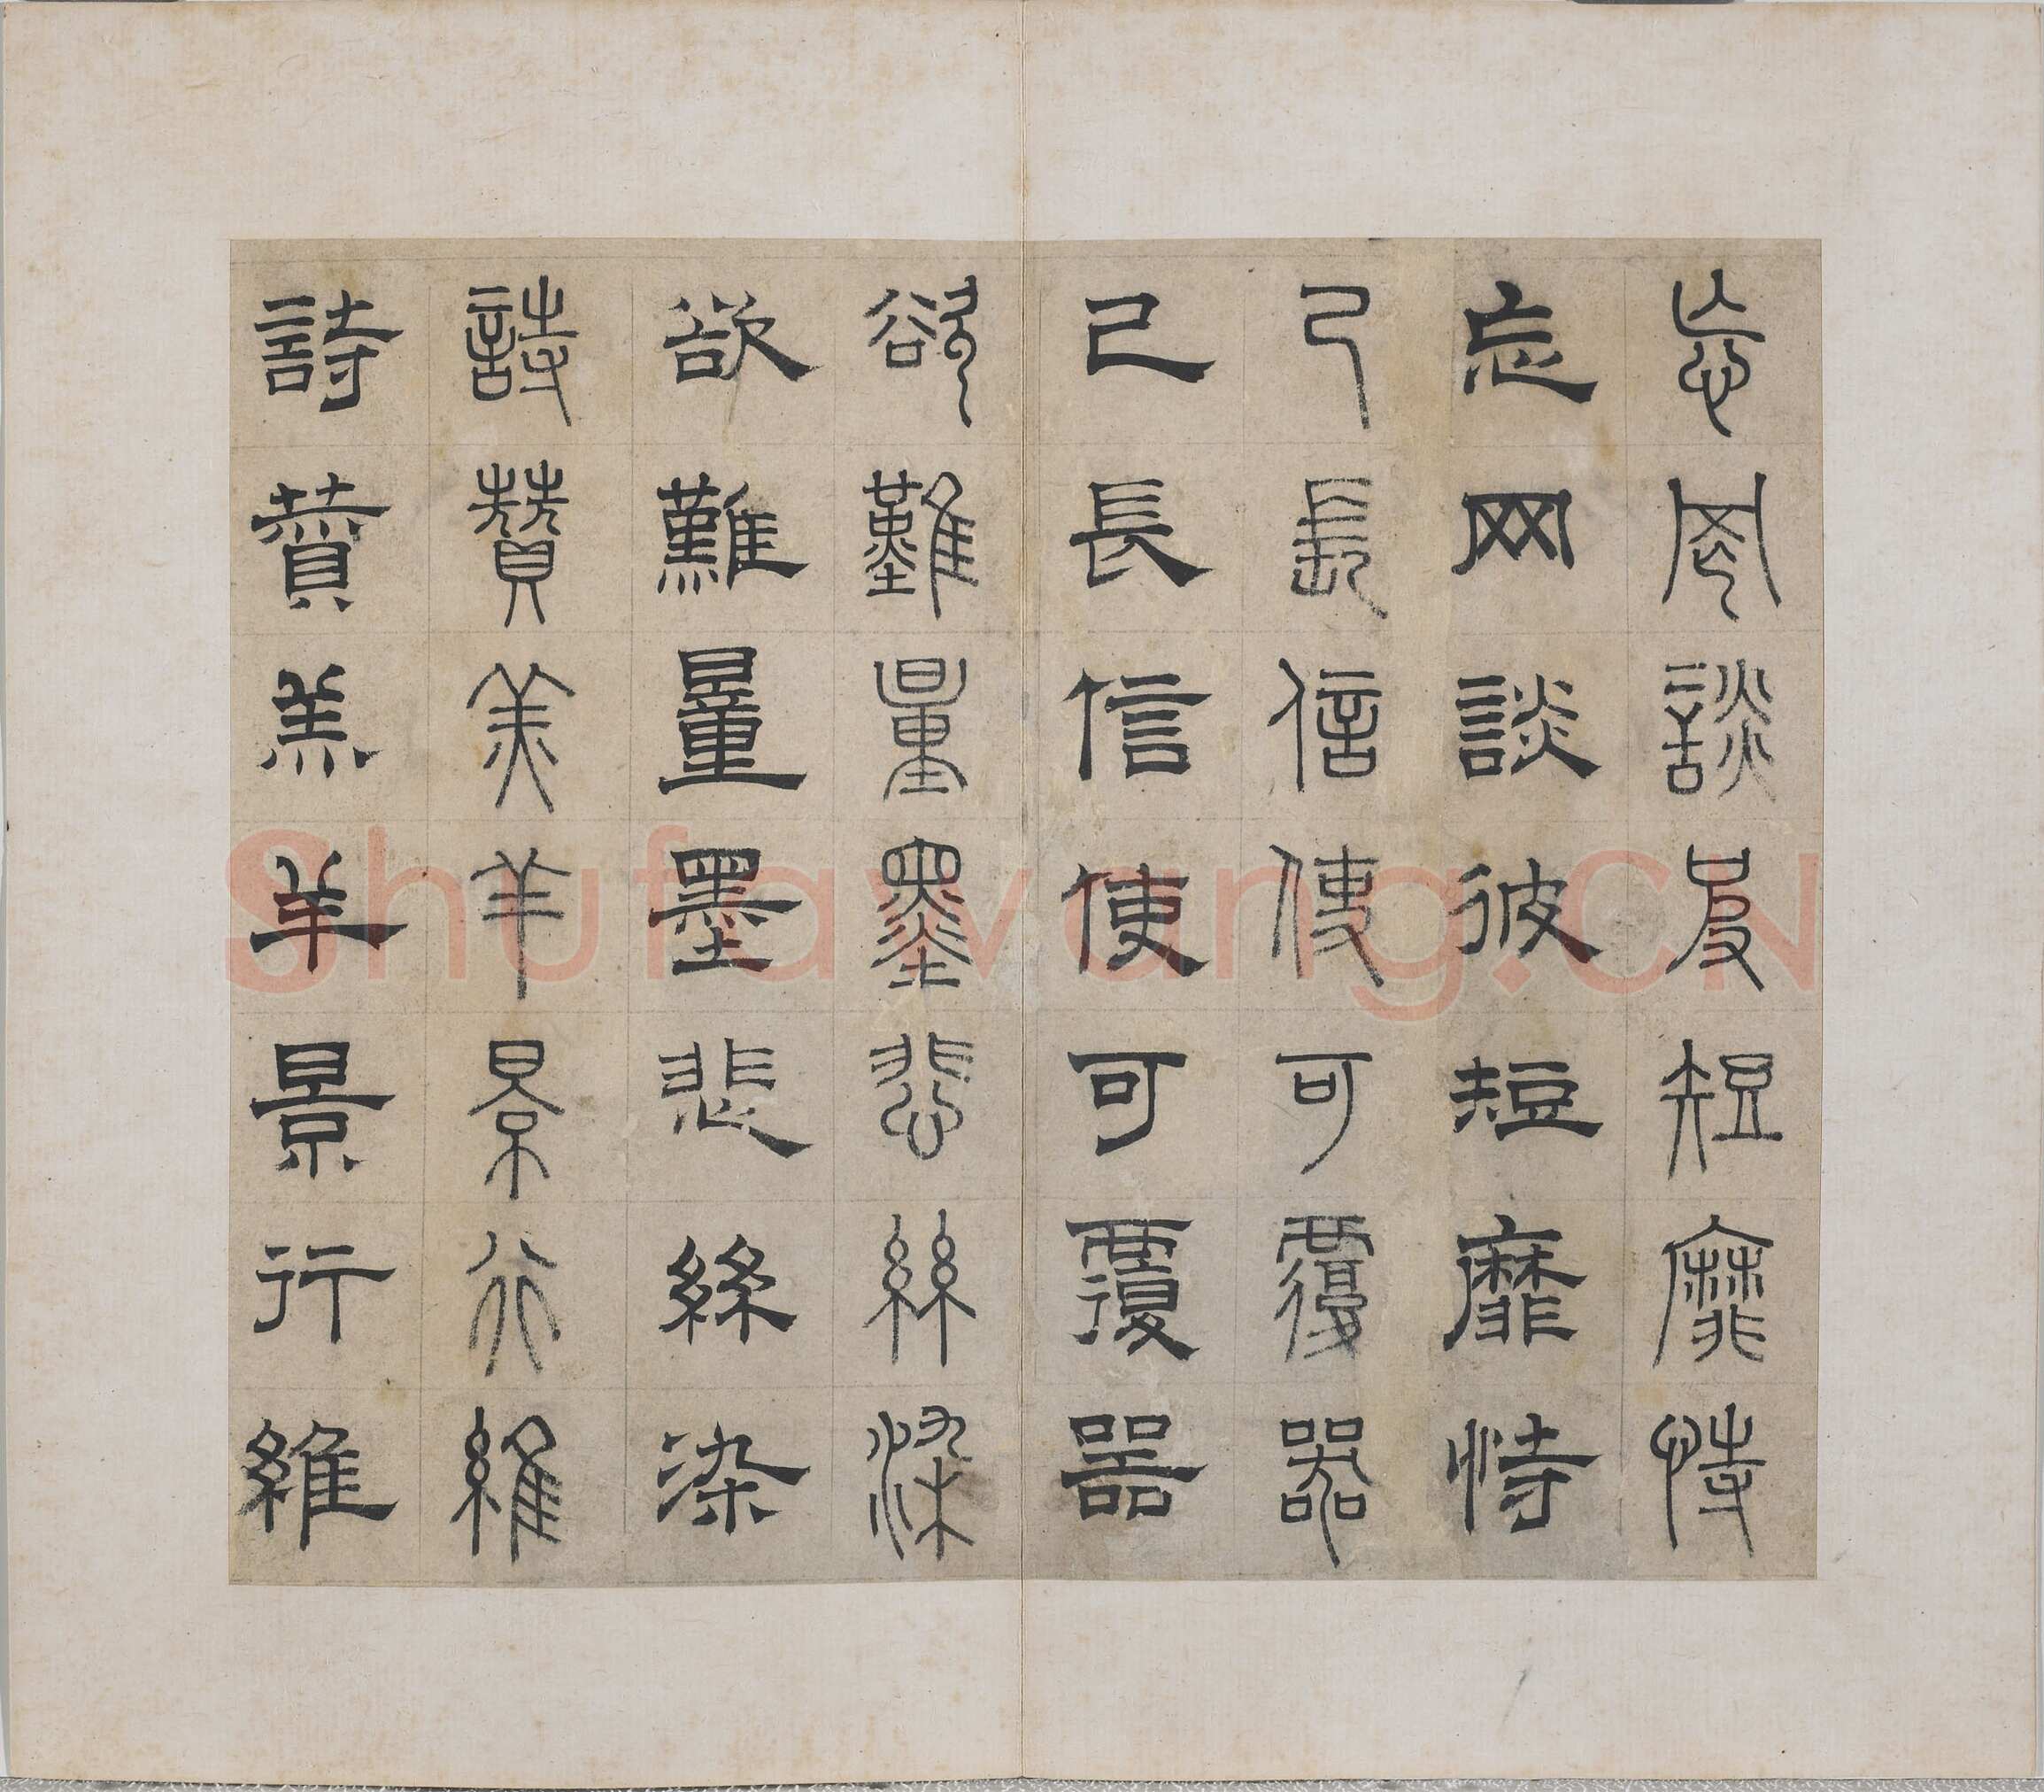 忘罔談彼短靡恃
忘网談彼短靡恃
己長信使可覆器
己長信使可覆器
欲難量墨悲絲染
欲難量墨悲絲染
詩贊羔羊景行維
詩贊羔羊景行維
Shufawang.CN